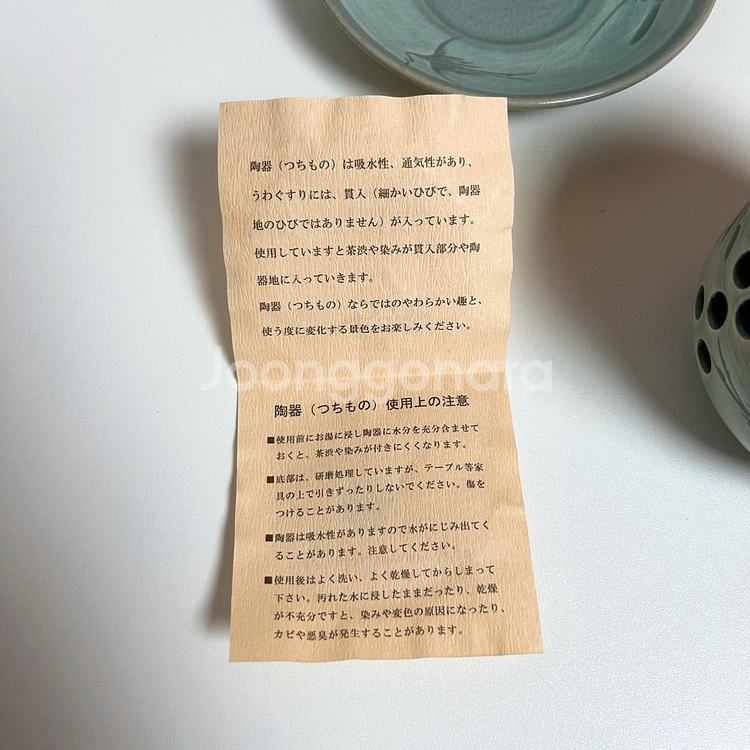 陶器（つちもの）は吸水性、通気性があり、
うわぐすりには、貫入（細かいひびで、陶器
地のひびではありません）が入っています。
使用していますと茶渋や染みが貫入部分や陶
器地に入っていきます。
陶器（つちもの）ならではのやわらかい趣と、
使う度に変化する景色をお楽しみください。
Joonggonara
陶器（つちもの）使用上の注意
■使用前にお湯に浸し陶器に水分を充分含ませて
おくと、茶渋や染みが付きにくくなります。
■底部は、研磨処理していますが、テーブル等家
具の上で引きずったりしないでください。傷を
つけることがあります。
■陶器は吸水性がありますので水がにじみ出てく
ることがあります。注意してください。
■使用後はよく洗い、よく乾燥してからしまって
下さい。汚れた水に浸したままだったり、乾燥
が不充分ですと、染みや変色の原因になったり、
カビや悪臭が発生することがあります。